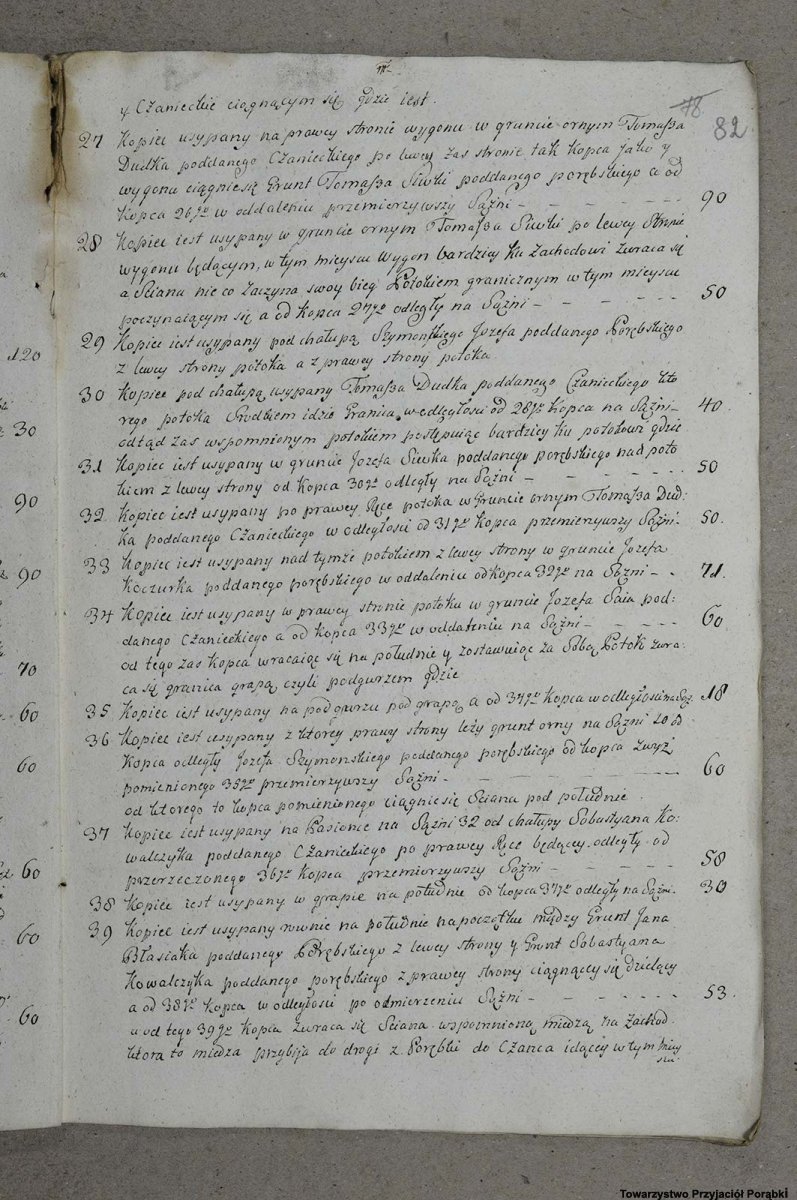 78
82
y Czanieckie ciągnącym się gdzie iest.
27 Kopiec usypany na prawey stronie wygonu w gruncie ornym Tomaszа
Dudka poddanego Czanieckiego po lewey zas stronie tak kopca jako y
wygonu ciągnie się Grunt Tomasza Siwki poddanego porębskiego a od
kopca 26go w oddaleniu przemierzywszy Sążni - - - - - 90
28 Kopiec iest usypany w gruncie ornym Tomasza Siwki po lewey Stronie
wygonu będącym, w tym mieyscu wygon bardziey ku Zachodowi zwraca się
a Sciana nieco zaczyna swoy bieg Potokiem granicznym w tym mieyscu
poczynaiącym się a od kopca 27go odległy na Sążni - - - - - - 50
29 Kopiec iest usypany pod chałupą Szymonskiego Jozefa poddanego Porębskiego
z lewey strony potoka a z prawey strony potoka
30 Kopiec pod chałupą usypany Tomasza Dudka poddanego Czanieckiego kto
rego potoka Srodkiem idzie Granica, w odległosci od 28go kopca na Sążni - 40
odtąd zas wspomnionym potokiem postępuiąc bardziey ku potokowi gdzie
31 Kopiec iest usypany w gruncie Jozefa Siwka poddanego porębskiego nad poto
kiem z lewey strony od kopca 30go odległy na Sążni - - - - - - 50
32. Kopiec iest usypany po prawey Ręce potoka w Gruncie ornym Tomasza Dud:
ka poddanego Czanieckiego w odległosci od 31go kopca przemierzywszy Sążni - 50.
33 Kopiec iest usypany nad tymże potokiem z lewey strony w gruncie Jozefa
Koczurka poddanego porębskiego w oddaleniu od kopca 32go na Sążni - - 71.
34 Kopiec iest usypany w prawey stronie potoku w gruncie Jozefa Saia pod:
danego Czanieckiego a od kopca 33go w oddaleniu na Sążni - - - - - 60
od tego zas kopca wracaiąc się na południe y zostawuiąc za Sobą Potok zwra:
ca się granica grapą czyli podgurzem gdzie
35 Kopiec iest usypany na podgurzu pod grapą a od 34go kopca w odległosci na Sąż. 18
36 Kopiec iest usypany z ktorey prawy strony leży grunt orny na Sążni 20 od
Kopca odległy Jozefa Szymonskiego poddanego porębskiego od kopca zwyż
pomienionego 35go przemierzywszy Sążni - - - - - - - 60
od ktorego to kopca pomienionego ciągnie się Sciana pod południe
37 Kopiec iest usypany na Pasionce na Sążni 32 od chałupy Sobastyana Ko:
walczyka poddanego Czanieckiego po prawey Ręce będącey, odległy od
przerzeczonego 36go kopca przemierzywszy Sążni - - - - - - 58
38 Kopiec iest usypany w grapie na południe od kopca 37go odległy na Sążni. 30
39 Kopiec iest usypany rownie na południe na początku między Grunt Jana
Błasiaka poddanego Porębskiego z lewey strony y Grunt Sobastyana
Kowalczyka poddanego porębskiego z prawey strony ciągnącey się dzielący
a od 38go kopca w odległosci po odmierzeniu Sążni - - - - - - - 53.
a od tego 39go kopca zwraca się Sciana wspomnioną miedzą na Zachod
ktora to miedza przybija do drogi z Porębki do Czanca idącey w tym miey
scu.
120
30
90
90
70
60
60
60
60
60
Towarzystwo Przyjaciół Porąbki